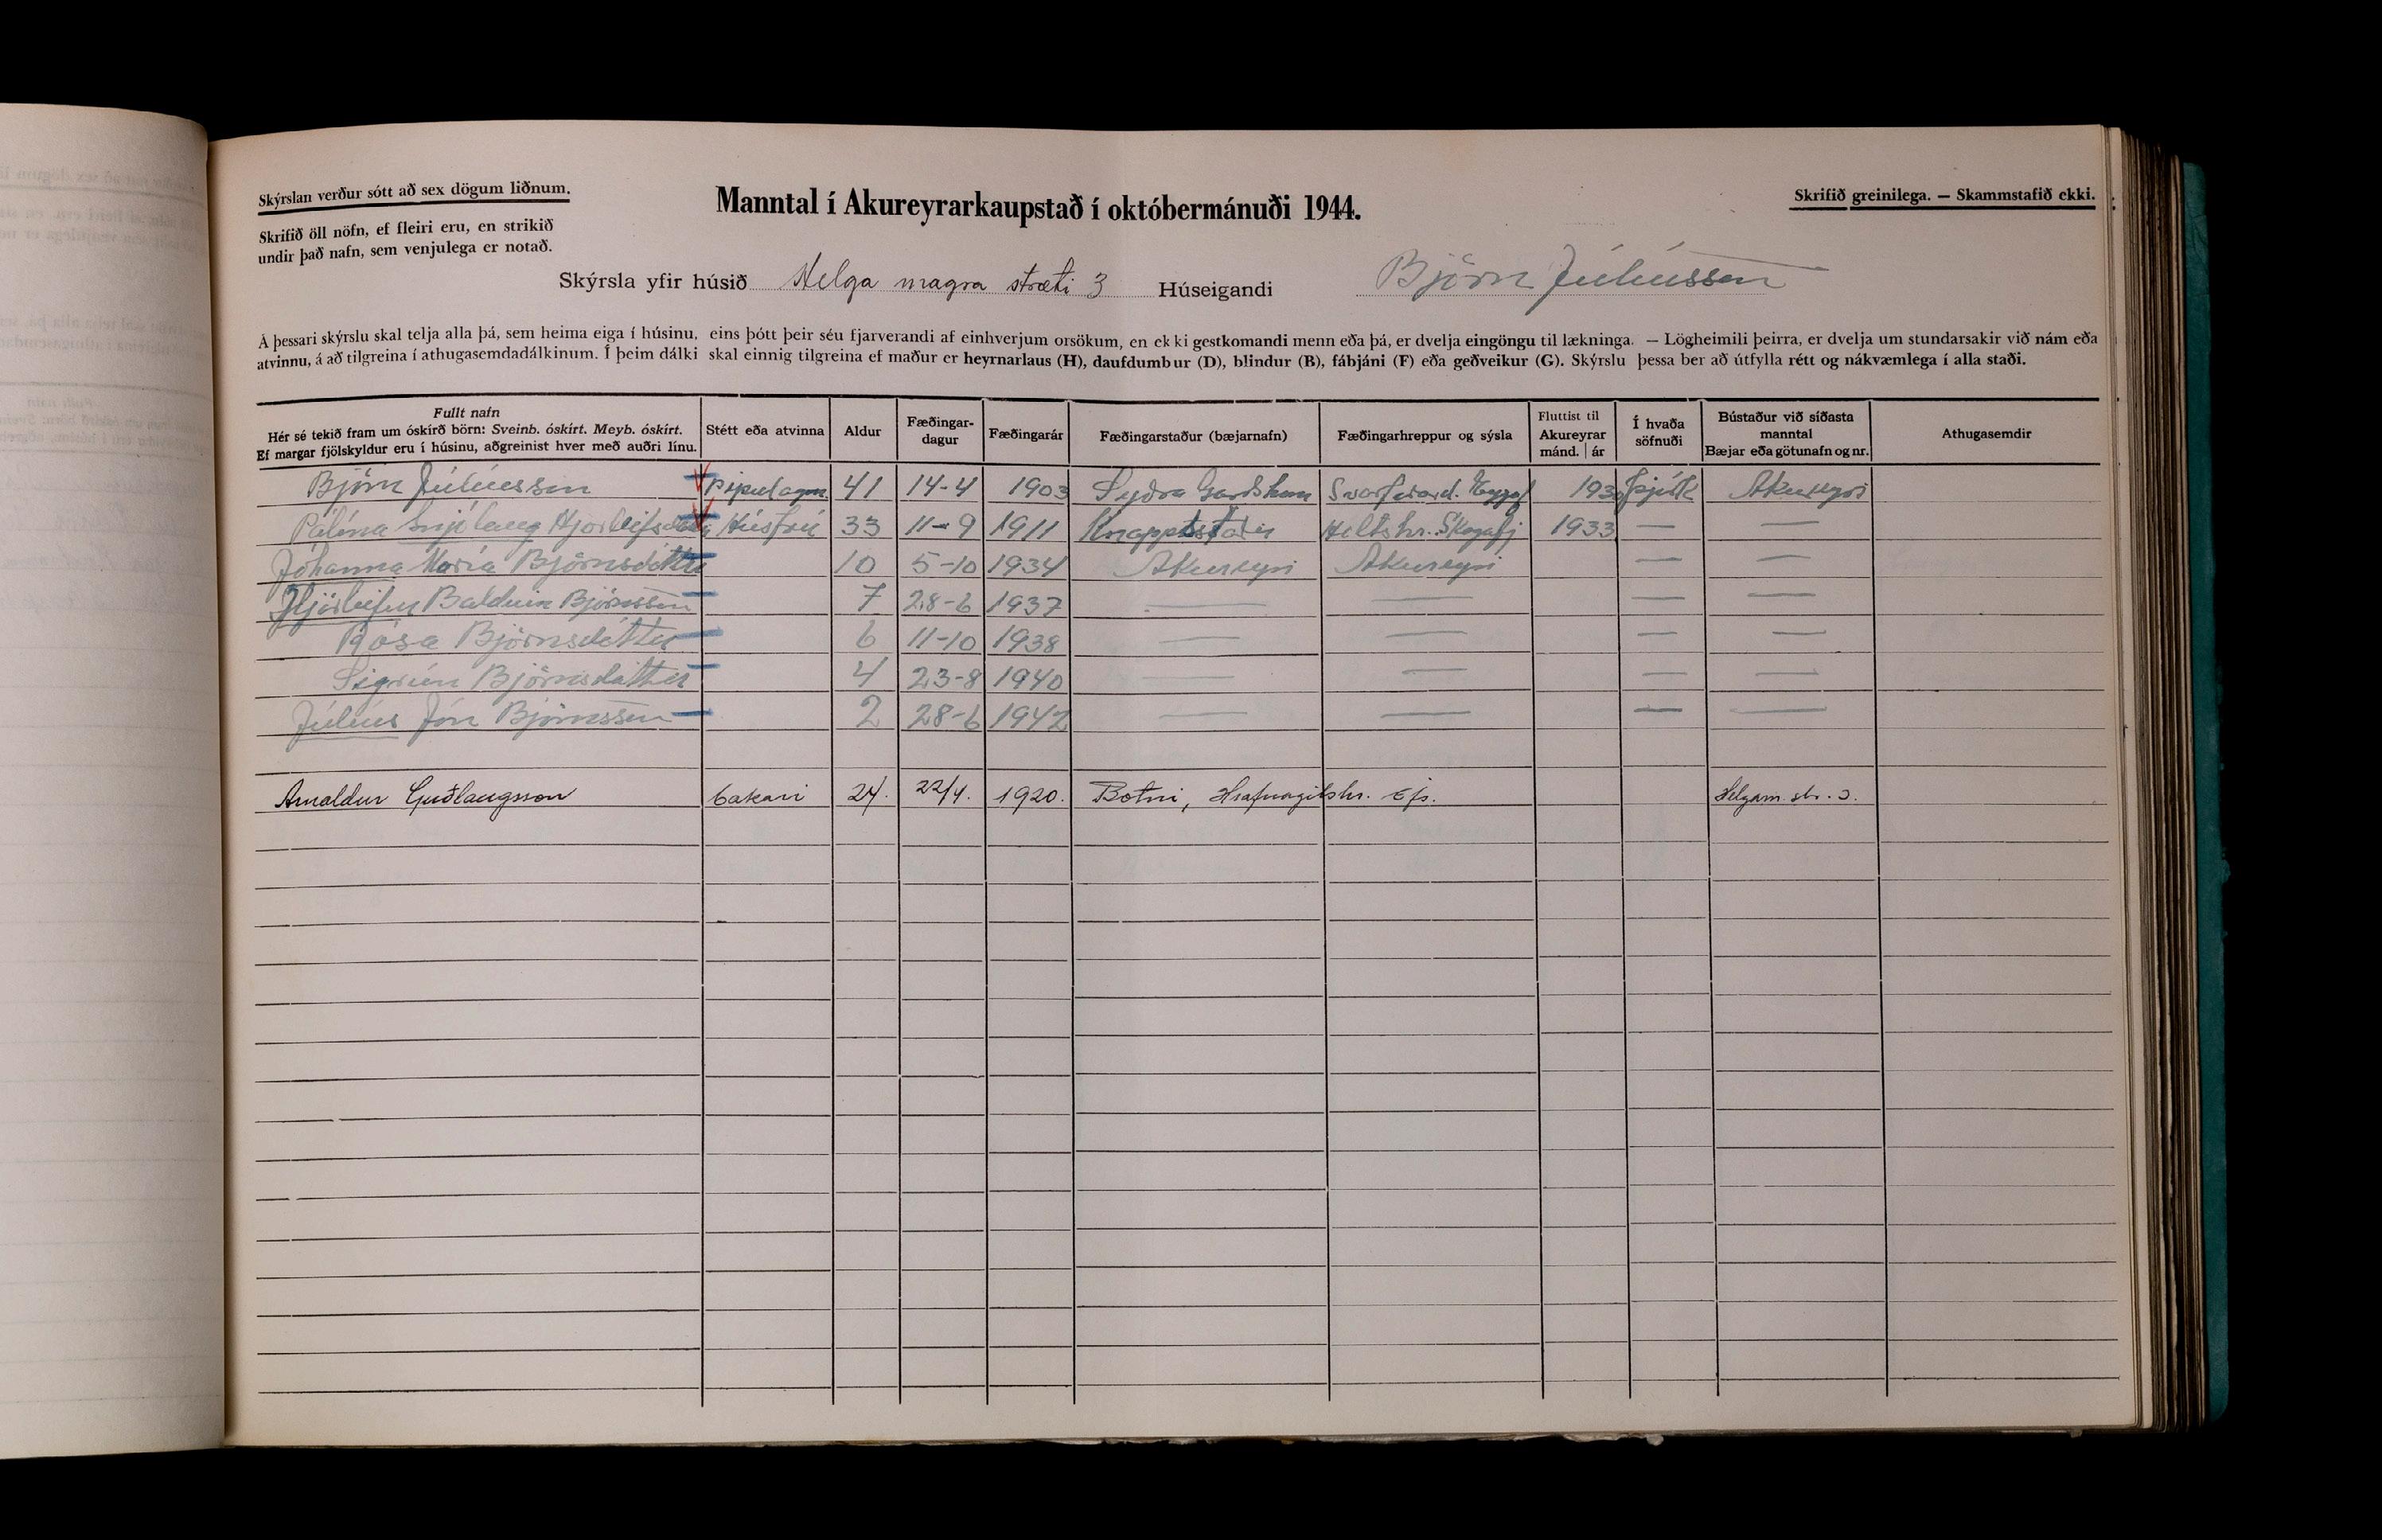 Skýrslan verður sótt að sex dögum liðnum.
Skrifið öll nöfn, ef fleiri eru, en strikið
undir það nafn, sem venjulega er notað.
Manntal í Akureyrarkaupstað í októbermánuði 1944.
Skrifið greinilega. — Skammstafið ekki.
Skýrsla yfir húsið Helga magra stræti 3 Húseigandi Björn Júlíusson
Á þessari skýrslu skal telja alla þá, sem heima eiga í húsinu, eins þótt þeir séu fjarverandi af einhverjum orsökum, en ekki gestkomandi menn eða þá, er dvelja eingöngu til lækninga. — Lögheimili þeirra, er dvelja um stundarsakir við nám eða
atvinnu, á að tilgreina í athugasemdadálkinum. Í þeim dálki skal einnig tilgreina ef maður er heyrnarlaus (H), daufdumbur (D), blindur (B), fábjáni (F) eða geðveikur (G). Skýrslu þessa ber að útfylla rétt og nákvæmlega í alla staði.
Fullt nafn
Hér sé tekið fram um óskírð börn: Sveinb. óskírt. Meyb. óskírt.
Ef margar fjölskyldur eru í húsinu, aðgreinist hver með auðri línu.
Stétt eða atvinna
Aldur
Fæðingar-
dagur
Fæðingarár
Fæðingarstaður (bæjarnafn)
Fæðingarhreppur og sýsla
Fluttist til
Akureyrar
mánd. | ár
Í hvaða
söfnuði
Bústaður við síðasta
manntal
Bæjar eða götunafn og nr.
Athugasemdir
Björn Júlíusson Pípulagm. 41 14-4 1903 Syðra Garðshorn Svarfaðard. 193 Þjóðk Akureyri
Pálína Snjólaug Hjörleifsdóttir Húsfrú 33 11-9 1911 Knappsstaðir Holtshr. Skagafj 1933 — —
Jóhanna María Björnsdóttir 10 5-10 1934 Akureyri Akureyri — —
Hjörleifur Baldvin Björnsson 7 28-6 1937 — — — —
Rósa Björnsdóttir 6 11-10 1938 — — — —
Sigrún Björnsdóttir 4 23-8 1940 — — — —
Júlíus Jón Björnsson 2 28-6 1942 — — — —
Arnaldur Guðlaugsson bakari 24. 22/4. 1920. Botni, Hrafnagilshr. Eyf. Helgam. str. 3.